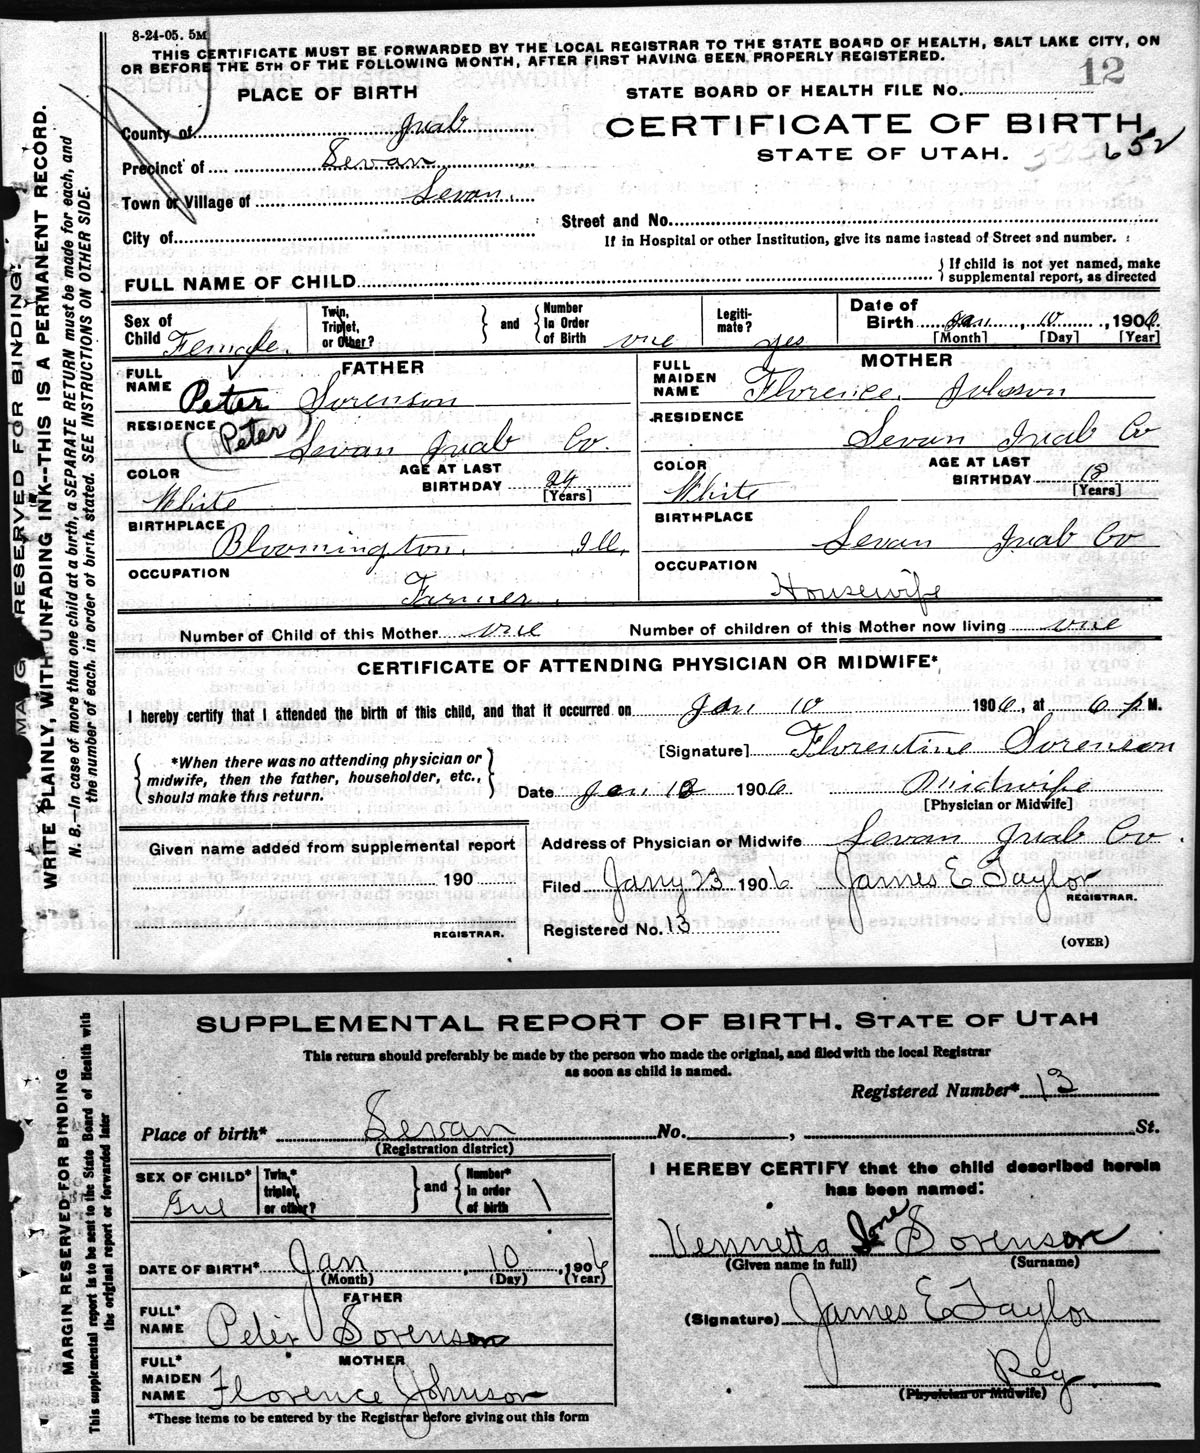 8-24-05. 5M
THIS CERTIFICATE MUST BE FORWARDED BY THE LOCAL REGISTRAR TO THE STATE BOARD OF HEALTH, SALT LAKE CITY, ON
OR BEFORE THE 5TH OF THE FOLLOWING MONTH, AFTER FIRST HAVING BEEN PROPERLY REGISTERED.
PLACE OF BIRTH
STATE BOARD OF HEALTH FILE No. 12
County of Juab
CERTIFICATE OF BIRTH
652
Precinct of Levan
STATE OF UTAH.
Town or Village of Levan
Street and No.
City of
If in Hospital or other Institution, give its name instead of Street and number.
FULL NAME OF CHILD
If child is not yet named, make
supplemental report, as directed
Sex of Child Female
Twin, Triplet, or Other?
and
Number In Order of Birth one
Legiti- mate? yes
Date of Birth Jan 10, 1906
[Month] [Day] [Year]
FATHER
FULL NAME Peter Sorenson
RESIDENCE (Peter) Levan Juab Co.
COLOR White
AGE AT LAST BIRTHDAY 24
[Years]
BIRTHPLACE Bloomington, Ill,
OCCUPATION Farmer
MOTHER
FULL MAIDEN NAME Florence
RESIDENCE Levan Juab Co
COLOR White
AGE AT LAST BIRTHDAY 18
[Years]
BIRTHPLACE Levan Juab Co
OCCUPATION Housewife
Number of Child of this Mother one Number of children of this Mother now living one
CERTIFICATE OF ATTENDING PHYSICIAN OR MIDWIFE*
I hereby certify that I attended the birth of this child, and that it occurred on Jan 10 1906, at 6 P M.
[Signature] Florentine Sorenson
*When there was no attending physician or
midwife, then the father, householder, etc.,
should make this return.
Date Jan 1906 Midwife
[Physician or Midwife]
Given name added from supplemental report
190
REGISTRAR.
Address of Physician or Midwife Levan Juab Co.
Filed Jany 23 1906 James E Taylor
REGISTRAR.
Registered No. 13
(OVER)
MARGIN RESERVED FOR BINDING.
WRITE PLAINLY, WITH UNFADING INK--THIS IS A PERMANENT RECORD.
N. B.—In case of more than one child at a birth, a SEPARATE RETURN must be made for each, and
the number of each. in order of birth. stated. SEE INSTRUCTIONS ON OTHER SIDE.
SUPPLEMENTAL REPORT OF BIRTH. STATE OF UTAH
This return should preferably be made by the person who made the original, and filed with the local Registrar
as soon as child is named.
Registered Number* 13
Place of birth* Levan No. , St.
(Registration district)
SEX OF CHILD* Girl
Twin,* triplet, or other?
and
Number* in order of birth 1
I HEREBY CERTIFY that the child described herein
has been named:
Vennetta Ione Sorenson
(Given name in full) (Surname)
DATE OF BIRTH* Jan 10, 1906
(Month) (Day) (Year)
FATHER
FULL* NAME Peter Sorenson
(Signature) James E Taylor
MOTHER
FULL* MAIDEN NAME Florence Johnson
Reg
(Physician or Midwife)
*These items to be entered by the Registrar before giving out this form
MARGIN RESERVED FOR BINDING
This supplemental report is to be sent to the State Board of Health with
the original report or forwarded later